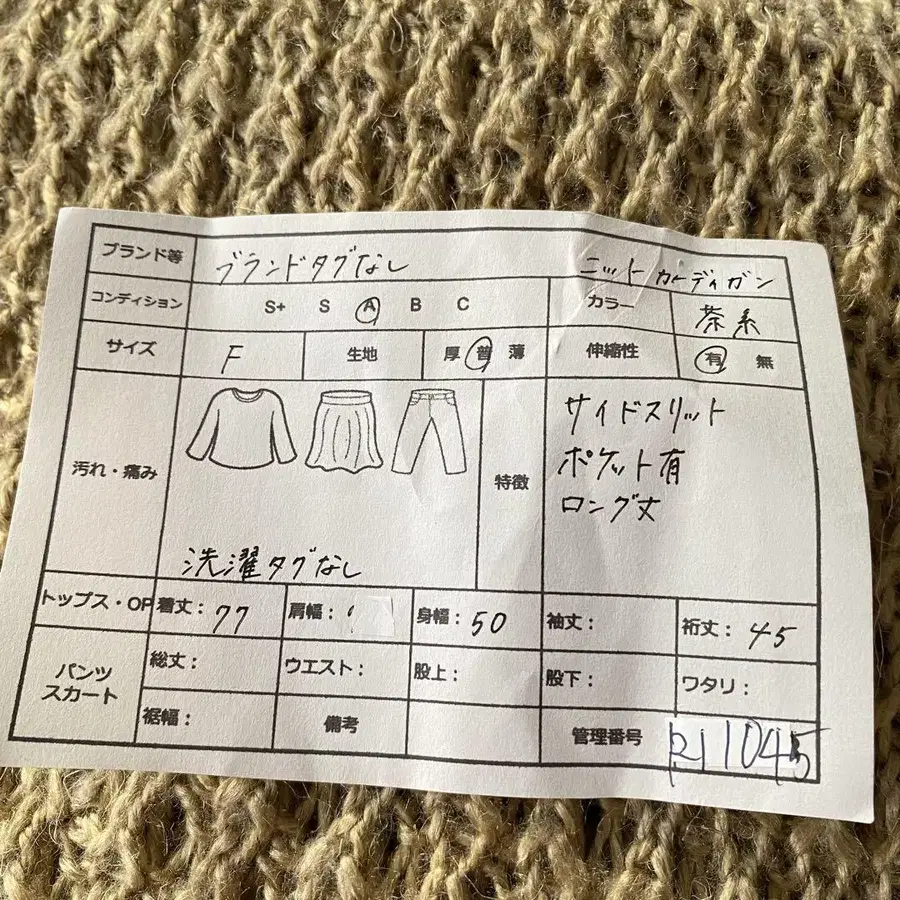 ブランド等 ブランドタグなし ニットカーディガン
コンディション S+ S A B C カラー 茶系
サイズ F 生地 厚 普 薄 伸縮性 有 無
汚れ・痛み 洗濯タグなし 特徴 サイドスリット
ポケット有
ロング丈
トップス・OP 着丈： 77 肩幅： 身幅： 50 袖丈： 裄丈： 45
パンツ スカート 総丈： ウエスト： 股上： 股下： ワタリ：
裾幅： 備考 管理番号 1045